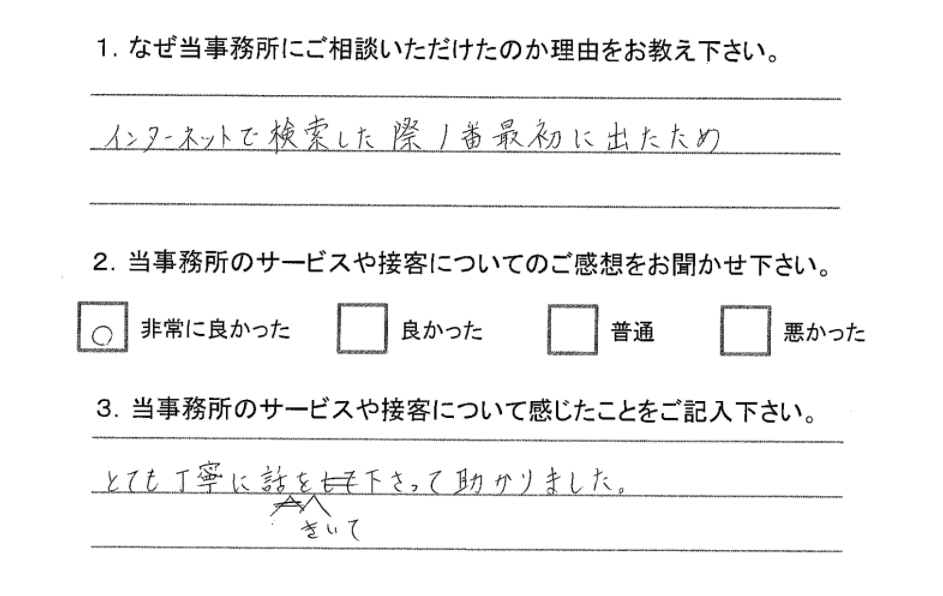 1. なぜ当事務所にご相談いただけたのか理由をお教え下さい。
インターネットで検索した際1番最初に出たため
2. 当事務所のサービスや接客についてのご感想をお聞かせ下さい。
○ 非常に良かった 良かった 普通 悪かった
3. 当事務所のサービスや接客について感じたことをご記入下さい。
とても丁寧に話を下さって助かりました。
きいて